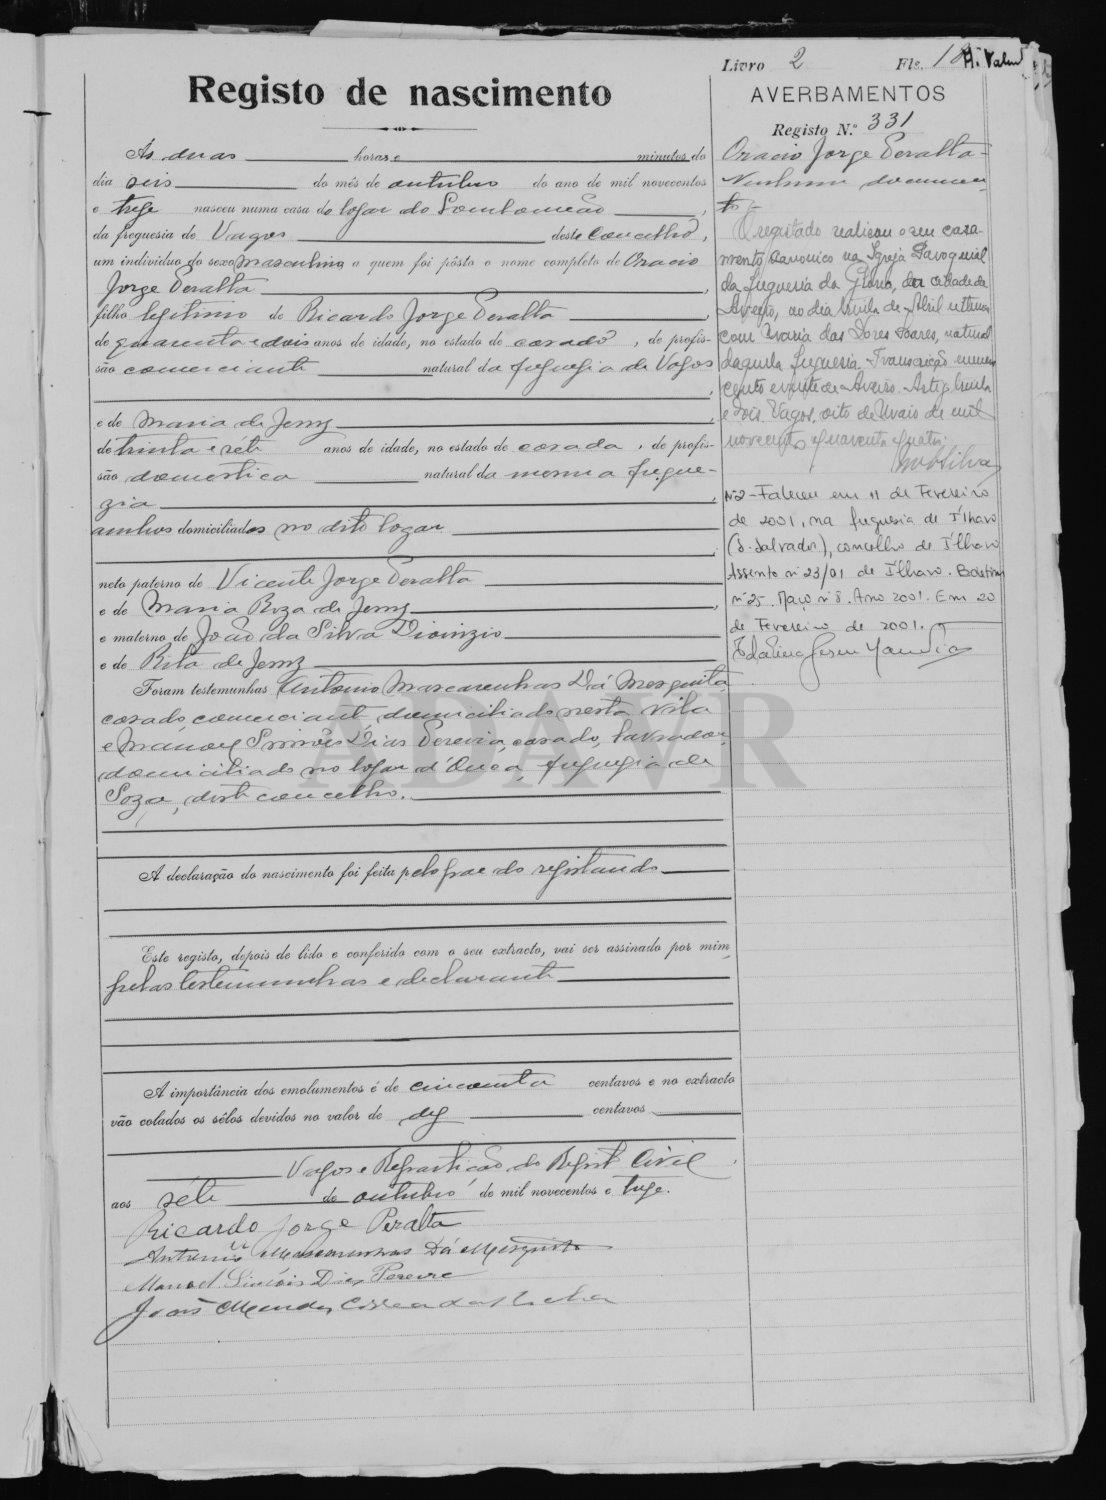 Livro 2 Fls. 18
Registo de nascimento
As duas horas e minutos do
dia seis do mês de outubro do ano de mil novecentos
e treze nasceu numa casa do logar do Lombomeão,
da freguesia de Vagos deste concelho,
um indivíduo do sexo masculino a quem foi pôsto o nome completo de Oracio
Jorge Peralta,
filho legitimo de Ricardo Jorge Peralta,
de quarenta e dois anos de idade, no estado de casado, de profis-
são comerciante natural da freguezia de Vagos
e de Maria de Jesus,
de trinta e sete anos de idade, no estado de casada, de profis-
são domestica natural da mesma fregue-
zia,
ambos domiciliados no dito logar
neto paterno de Vicente Jorge Peralta
e de Maria Roza de Jesus,
e materno de João da Silva Dionizio
e de Rita de Jesus
Foram testemunhas Antonio Mascarenhas Dá Mesquita,
casado, comerciante, domiciliado nesta vila
e Manoel Simões Dias Pereira, casado, lavrador,
domiciliado no logar d'Ouca, freguezia de
Soza, deste concelho.
ADAVR
A declaração do nascimento foi feita pelo pae do registando
Este registo, depois de lido e conferido com o seu extracto, vai ser assinado por mim,
pelas testemunhas e declarante
A importância dos emolumentos é de cincoenta centavos e no extracto
vão colados os sêlos devidos no valor de dez centavos
Vagos e Repartição do Registo Civil
aos sete de outubro de mil novecentos e treze.
Ricardo Jorge Peralta
Antonio Mascarenhas Dá Mesquita
Manoel Simões Dias Pereira
João Mendes Correia da Rocha
AVERBAMENTOS
Registo N.º 331
Oracio Jorge Peralta-
Nenhum documen-
to-
O registado realizou o seu casa-
mento canonico na Igreja Paroquial
da freguesia da Gloria, da cidade de
Aveiro, no dia trinta de Abril ultimo
com Maria das Dores Soares, natural
daquela freguesia. Transcrição numero
cento e vinte de Aveiro. Artigo trinta
e dois. Vagos, oito de Maio de mil
novecentos quarenta quatro.
Nº2- Faleceu em 11 de Fevereiro
de 2001, na freguesia de Ílhavo
(S. Salvador), concelho de Ílhavo
Assento nº 23/01 de Ílhavo. Boletim
nº 25. Maço nº 8. Ano 2001. Em 20
de Fevereiro de 2001.